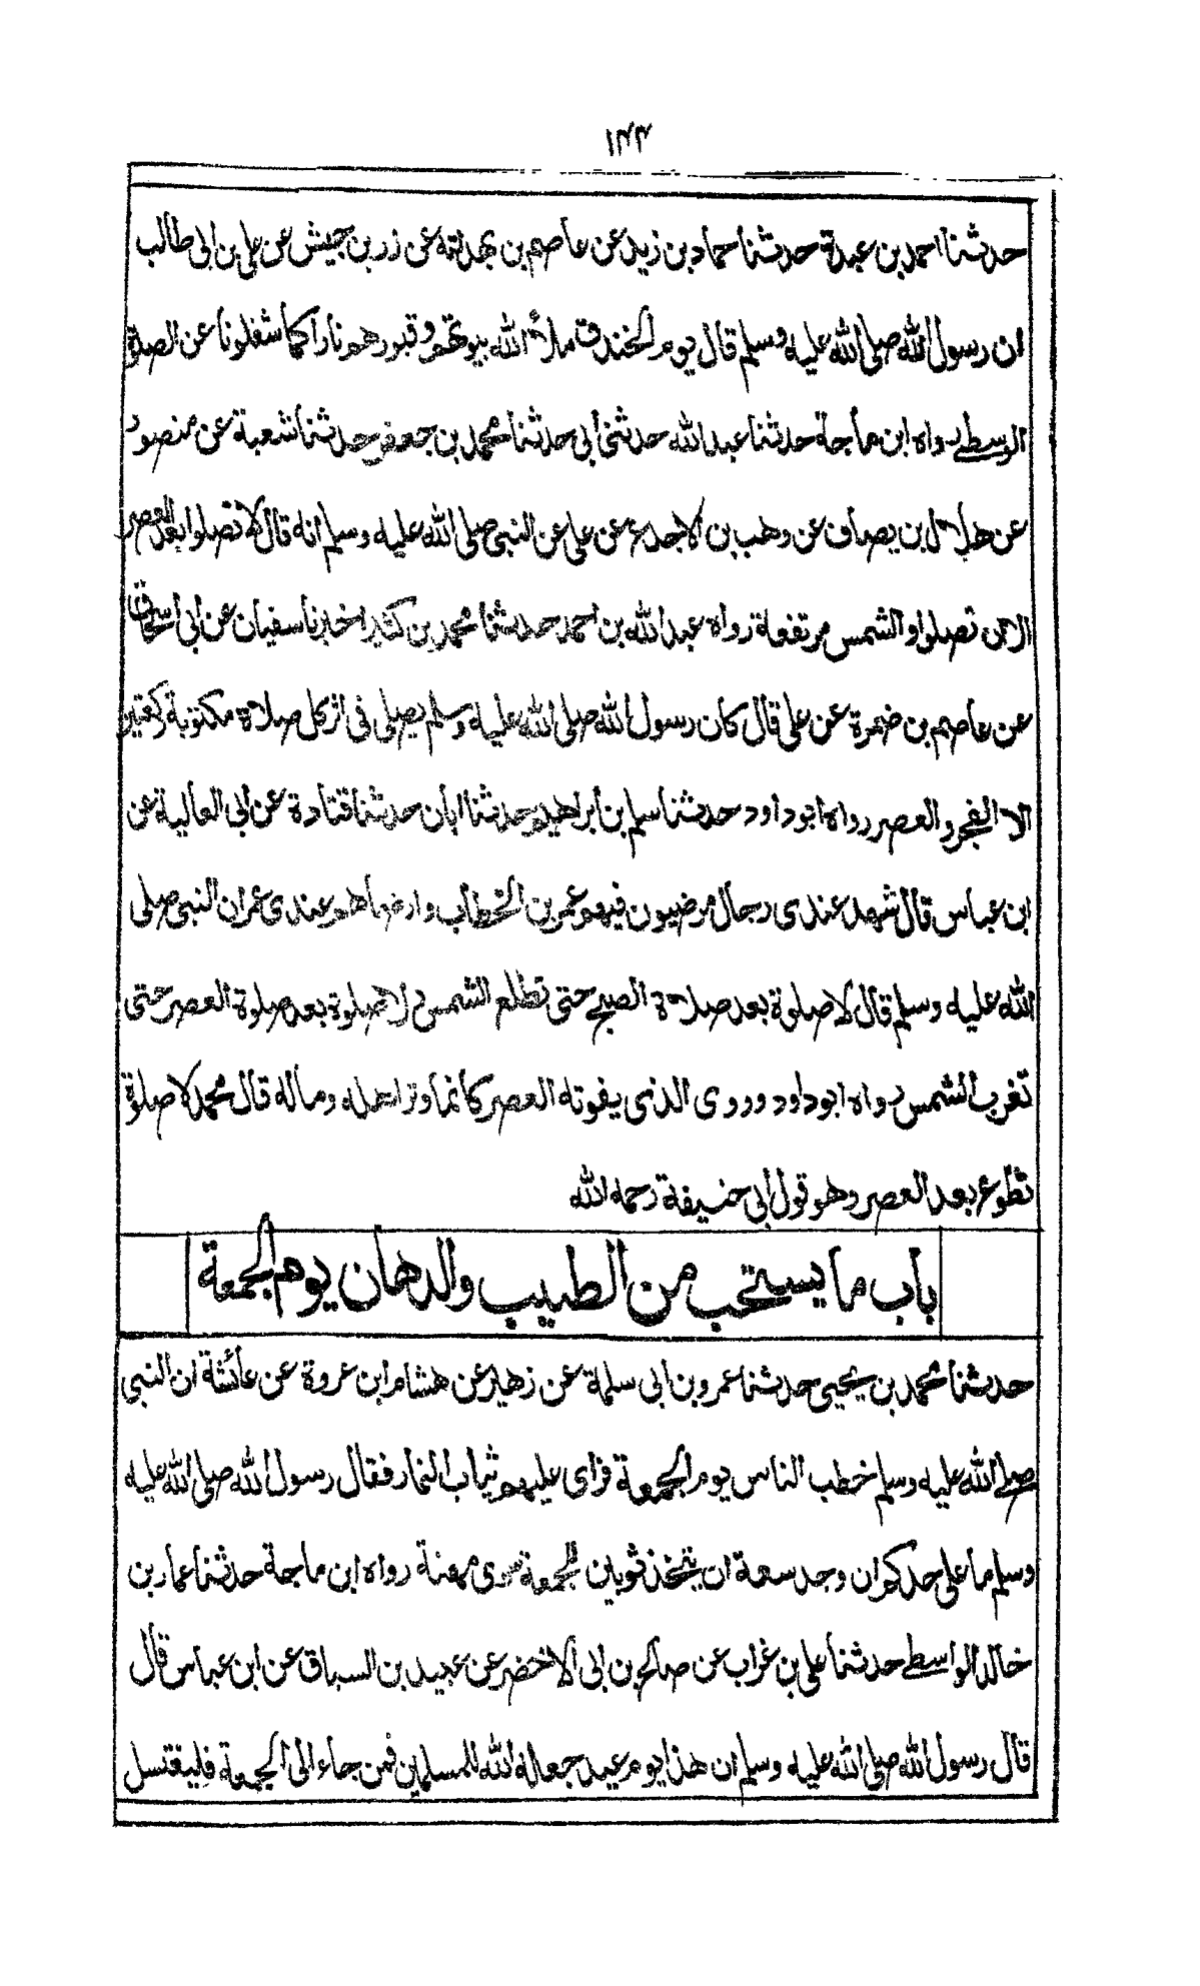 ١٣٣
حدثنا احمد بن عبدة حدثنا حماد بن زيد عن عاصم بن بهدلة عن زر بن حبيش عن علي بن ابي طالب
ان رسول الله صلى الله عليه وسلم قال يوم الخندق ملأ الله بيوتهم وقبورهم نارا كما شغلونا عن الصلوة
الوسطے رواه ابن ماجة حدثنا عبد الله حدثني ابي حدثنا محمد بن جعفر حدثنا شعبة عن منصور
عن هلال بن يصاف عن وهب بن الاجدع عن علي عن النبي صلى الله عليه وسلم انه قال لا تصلوا بعد العصر
الا ان تصلوا والشمس مرتفعة رواه عبد الله بن احمد حدثنا محمد بن كثير اخبرنا سفيان عن ابي اسحاق
عن عاصم بن ضمرة عن علي قال كان رسول الله صلى الله عليه وسلم يصلي في اثر كل صلاة مكتوبة ركعتين
الا الفجر والعصر رواه ابو داود حدثنا سلم بن ابراهيم حدثنا ابان حدثنا قتادة عن ابي العالية عن
ابن عباس قال شهد عندي رجال مرضيون فيهم عمر بن الخطاب وارضاهم عندي عمر ان النبي صلى
الله عليه وسلم قال لا صلوة بعد صلاة الصبح حتى تطلع الشمس ولا صلوة بعد صلوة العصر حتى
تغرب الشمس رواه ابو داود وروى الذي يفوته العصر كانما وتر اهله وماله قال محمد لا صلوة
تطوع بعد العصر وهو قول ابي حنيفة رحمه الله
باب ما يستحب من الطيب والدهان يوم الجمعة
حدثنا محمد بن يحيى حدثنا عمرو بن ابي سلمة عن زهير عن هشام ابن عروة عن عائشة ان النبي
صلے الله عليه وسلم خطب الناس يوم الجمعة فراى عليهم ثياب النمار فقال رسول الله صلى الله عليه
وسلم ما على احدكم ان وجد سعة ان يتخذ ثوبين لجمعة سوى مهنة رواه ابن ماجة حدثنا عمار بن
خالد الواسطے حدثنا علي بن غراب عن صالح بن ابي الاخضر عن عبيد بن السباق عن ابن عباس قال
قال رسول الله صلى الله عليه وسلم ان هذا يوم عيد جعله الله للمسلمين فمن جاء الى الجمعة فليغتسل